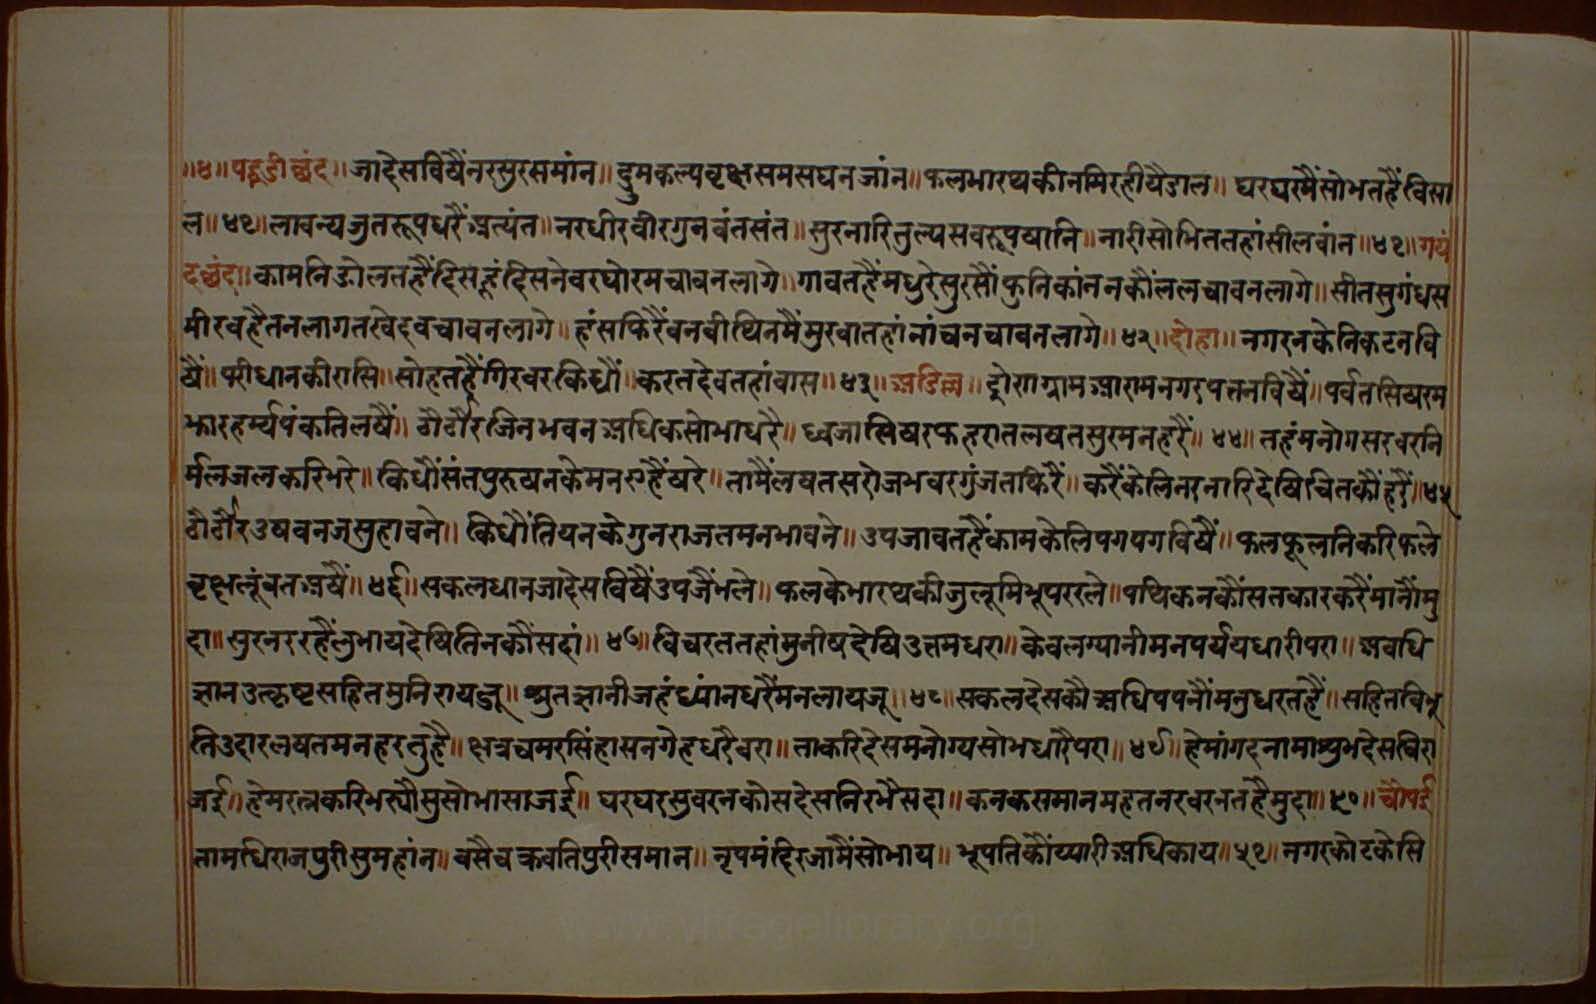 ॥४॥ पद्धडी छंद ॥ जादेसविषैंनरसुरसमांन॥ द्रुमकल्पवृक्षसमसघनजांन॥ फलभारथकीनमिरहीयैडाल॥ घरघरमैंसोभतहैंविसा
ल॥४१॥लावन्यजुतरूपधरैंअत्यंत॥नरधीरवीरगुनवंतसंत॥सुरनारितुल्यसवरूपषानि॥नारीसोभिततहांसीलवांन॥४१॥गयं
दछंद॥कामनिडोलतहैंदिसहूंदिसनेवरघोरमचावनलागे॥गावतहैंमधुरेसुरसौंफुनिकांननकौंललचावनलागे॥सीतसुगंधस
मीरवहैतनलागतखेदवचावनलागे॥हंसफिरैंवनवीथिनमैंमुरवातहांनांचनचावनलागे॥४२॥दोहा॥नगरनकेनिकटनवि
षैं॥परीधानकीरासि॥सोहतहैंगिरवरकिधौं॥करतदेवतहांवास॥४३॥अडिल्ल॥द्रोणग्रामआरामनगरपत्तनविषैं॥पर्वतसिषरम
झारहर्म्यपंकतिलषैं॥ठौरठौरजिनभवनअधिकसोभाधरै॥ध्वजासिषरफहरातलषतसुरमनहरैं॥४४॥तहंमनोगसरवरनि
र्मलजलकरिभरे॥किधौंसंतपुरुषनकेमनएहैंषरे॥तामैंलषतसरोजभवरगुंजतफिरैं॥करैंकेलिनरनारिदेषिचितकौंहरैं॥४५
ठौरठौरउषवनजसुहावने॥किधौंतियनकेगुनराजतमनभावने॥उपजावतहैंकामकेलिपगपगविषैं॥फलफूलनिकरिफले
वृक्षलूंवतअषैं॥४६॥सकलधानजादेसविषैंउपजैंभले॥फलकेभारथकीजुलूमिभूपररले॥पथिकनकौंसतकारकरैंमांनौंमु
दा॥सुरनररहैंलुभायदेषितिनकौंसदां॥४७॥विचरततहांमुनीषदेषिउत्तमधरा॥केवलग्यानीमनपर्ययधारीपरा॥अवधि
ज्ञानउत्कृष्टसहितमुनिरायजू॥श्रुतज्ञानीजहंध्यांनधरैंमनलायजू॥४८॥सकलदेसकौअधिपपनौंमनुधरतहैं॥सहितविभू
तिउदारलषतमनहरतुहै॥क्षत्रचमरसिंहासनगेहधरैवरा॥ताकरिदेसमनोग्यसोभधारैपरा॥४९॥हेमांगदनामाशुभदेसविरा
जई॥हेमरत्नकरिभर्योसुसोभासाजई॥घरघरसुवरनकोसदेसनिरभैसदा॥कनकसमानमहतनरवरनतहैमुदा॥५०॥चौपई
तामधिराजपुरीसुमहांन॥वसैचक्रवतिपुरीसमान॥नृपमंदिरजामैंसोभाय॥भूपतिकौंप्यारीअधिकाय॥५१॥नगरकोटकेसि
www.vitragelibrary.org